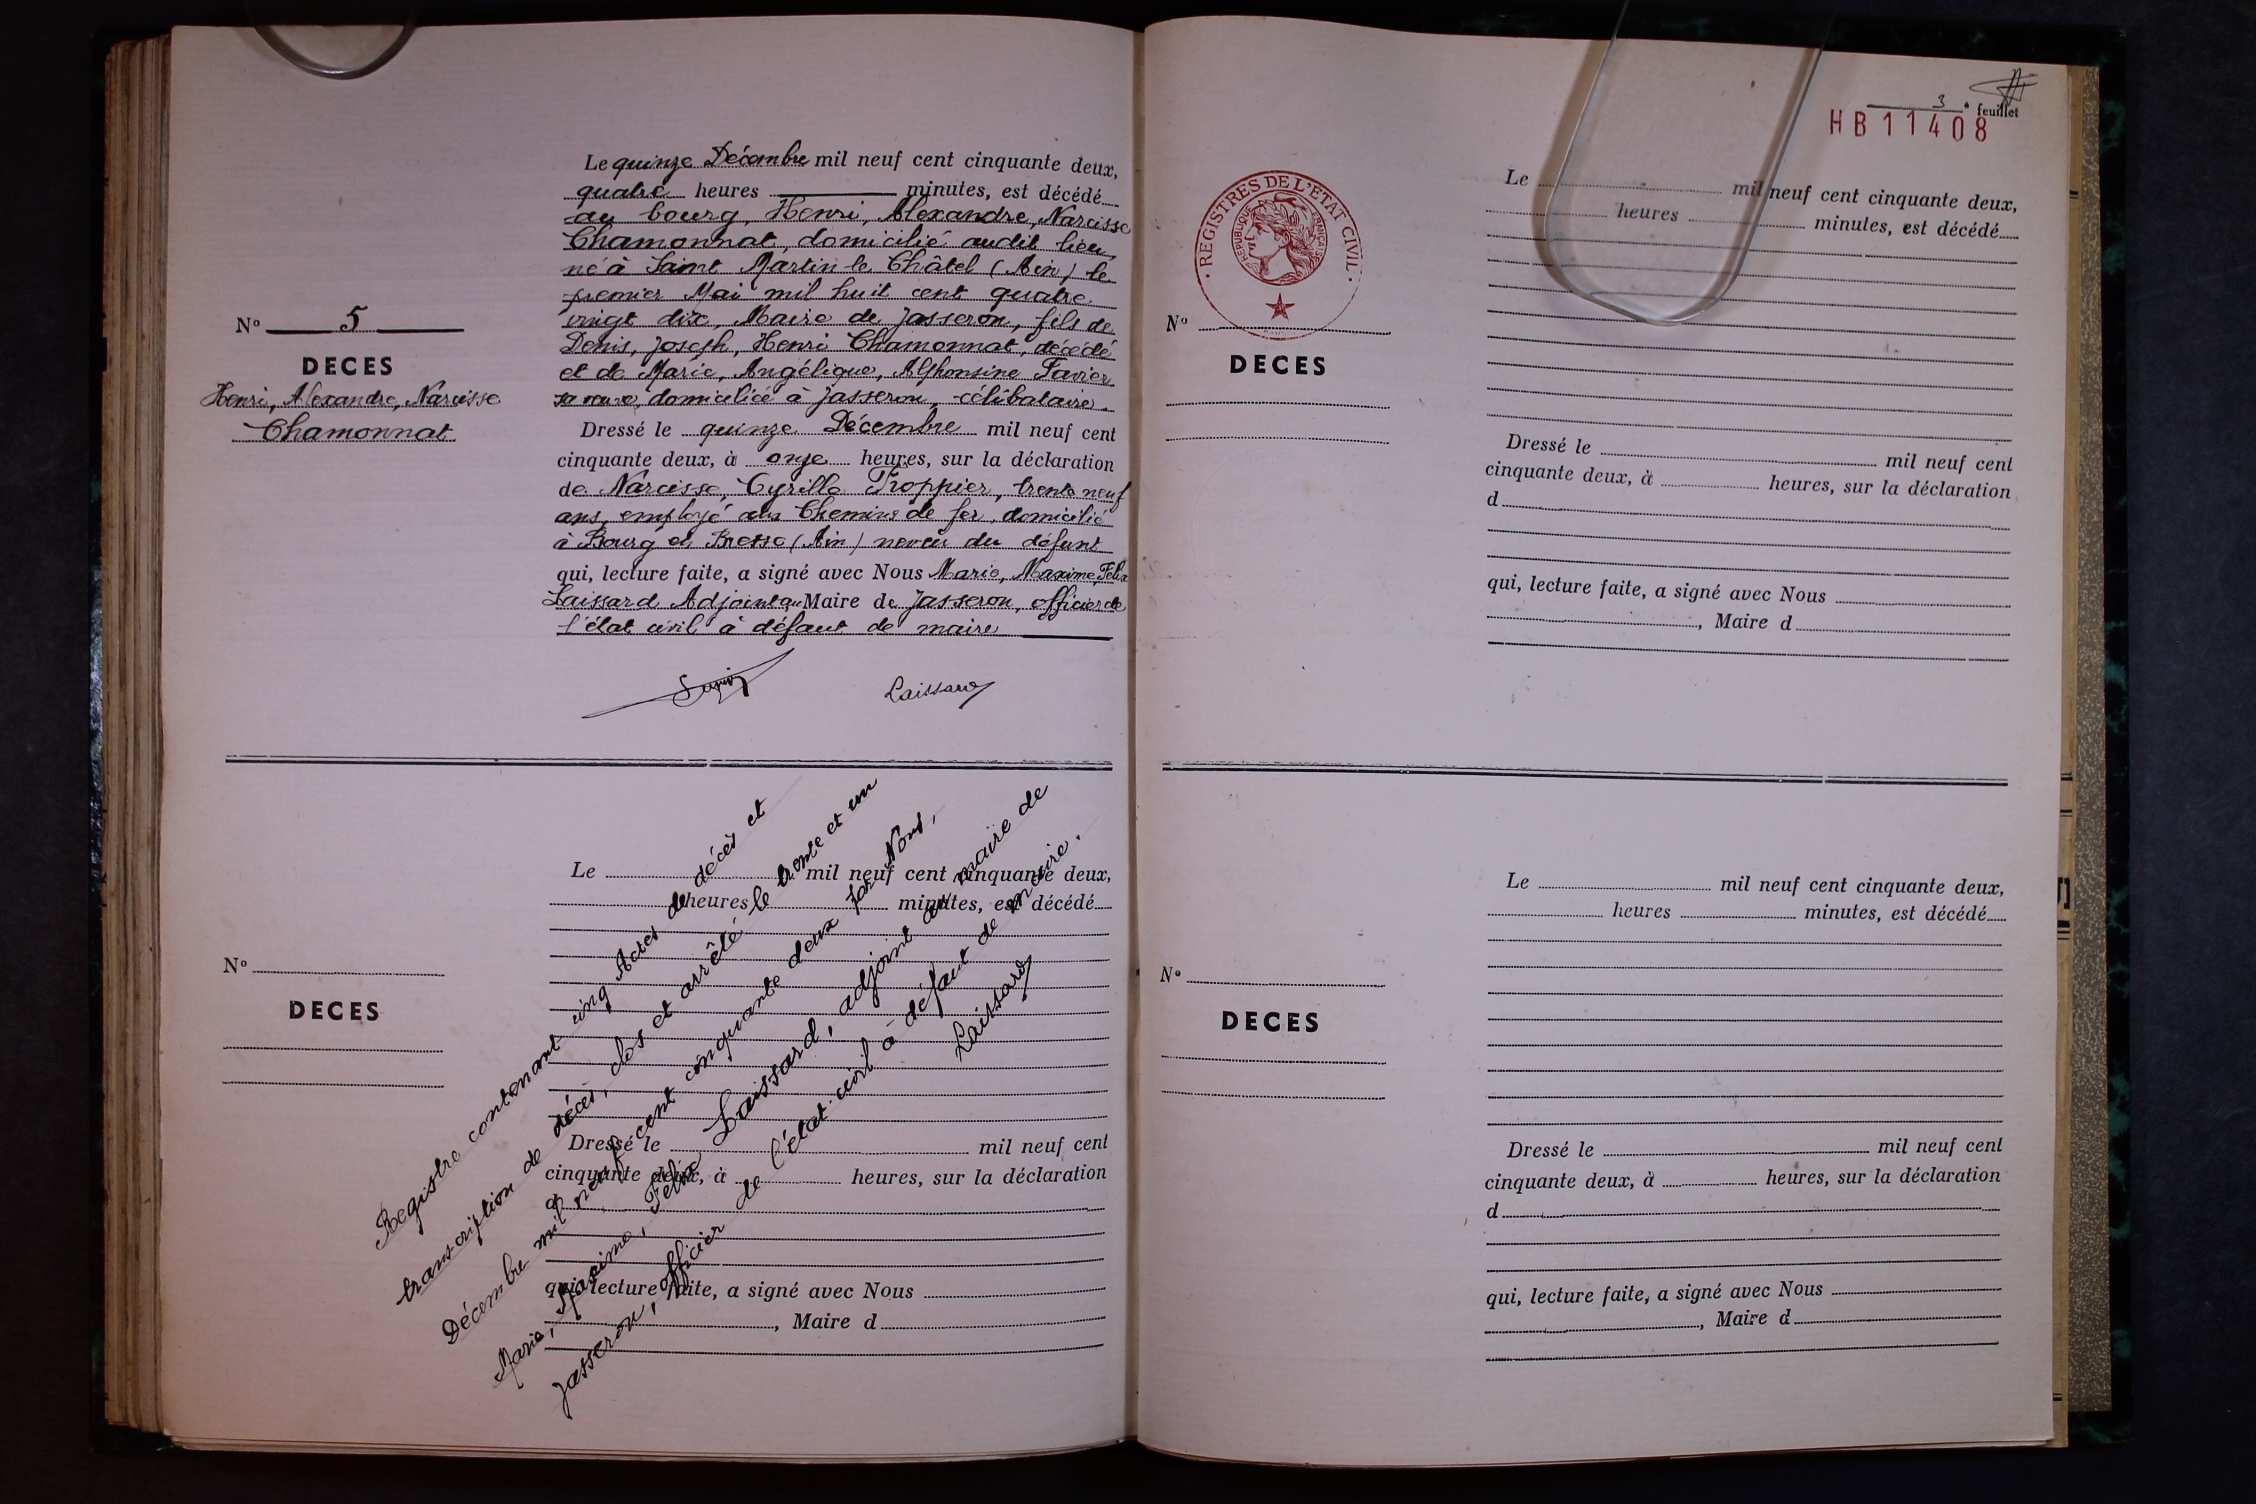 N° 5
DECES
Henri, Alexandre, Narcisse
Chamonnat
Le quinze Décembre mil neuf cent cinquante deux,
quatre heures minutes, est décédé
au bourg, Henri, Alexandre, Narcisse
Chamonnat, domicilié audit lieu,
né à Saint Martin le Châtel (Ain) le
premier Mai mil huit cent quatre
vingt dix, Maire de Jasseron, fils de
Denis, Joseph, Henri Chamonnat, décédé
et de Marie, Angélique, Alphonsine Favier
sa veuve, domicilié à Jasseron, célibataire.
Dressé le quinze Décembre mil neuf cent
cinquante deux, à onze heures, sur la déclaration
de Narcisse, Cyrille Troppier, trente neuf
ans, employé aux Chemins de fer, domicilié
à Bourg en Bresse (Ain) neveu du défunt
qui, lecture faite, a signé avec Nous Marie, Maxime, Felix
Laissard Adjoint au Maire de Jasseron, officier de
l'état civil à défaut de maire
Laissard
N°
DECES
Le mil neuf cent cinquante deux,
heures minutes, est décédé
Dressé le mil neuf cent
cinquante deux, à heures, sur la déclaration
d
qui, lecture faite, a signé avec Nous
, Maire d
Registre contenant cinq Actes de décès et
transcription de décès, clos et arrêté le trente et un
Décembre mil neuf cent cinquante deux par Nous,
Marie, Maxime, Felix Laissard, adjoint au maire de
Jasseron, officier de l'état civil à défaut de maire.
Laissard
3e feuillet
HB11408
REGISTRES DE L'ETAT CIVIL
REPUBLIQUE FRANÇAISE
N°
DECES
Le mil neuf cent cinquante deux,
heures minutes, est décédé
Dressé le mil neuf cent
cinquante deux, à heures, sur la déclaration
d
qui, lecture faite, a signé avec Nous
, Maire d
N°
DECES
Le mil neuf cent cinquante deux,
heures minutes, est décédé
Dressé le mil neuf cent
cinquante deux, à heures, sur la déclaration
d
qui, lecture faite, a signé avec Nous
, Maire d